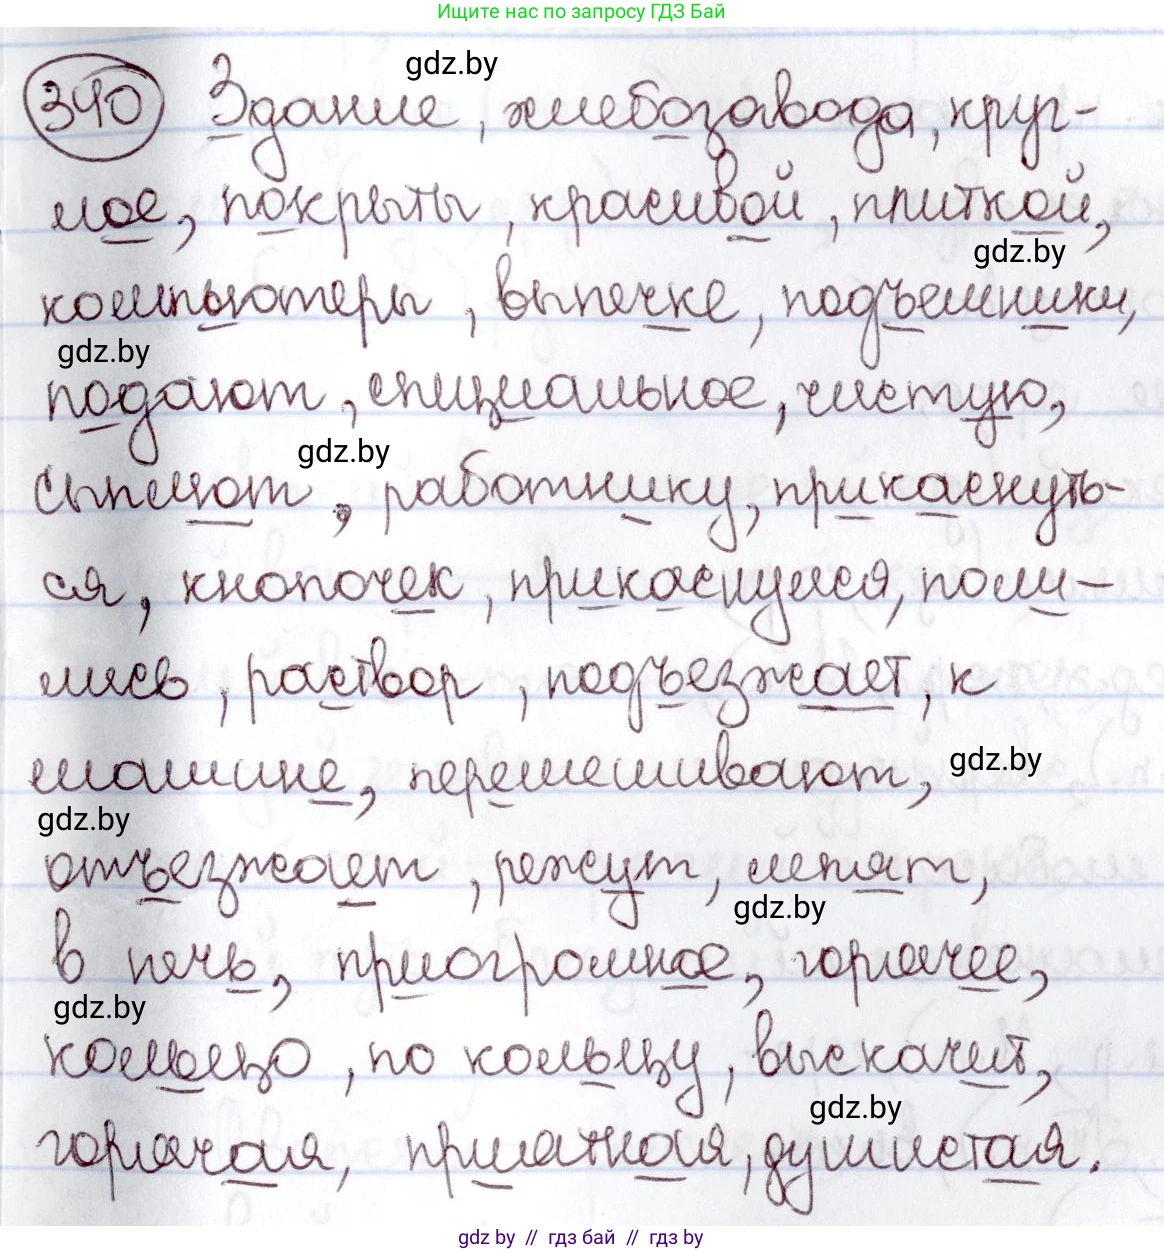 Ищите нас по запросу ГДЗ Бай
gdz.by
340 Здание, хлебозавода, круг-
лое, покрыты, красивой, плиткой,
gdz.by
компьютеры, выпечке, подъемники,
gdz.by
подают, специальное, чистую,
gdz.by
сыплют, работнику, прикаснуть-
ся, кнопочек, прикаснулся, поли-
лись, раствор, подъезжает, к
машине, перемешивают,
gdz.by
gdz.by
отъезжает, режут, летят,
gdz.by
в печь, приогромное, горячее,
gdz.by
кольцо, по кольцу, выскачит,
gdz.by
горячая, приятная, душистая.
gdz.by // гдз бай // гдз by